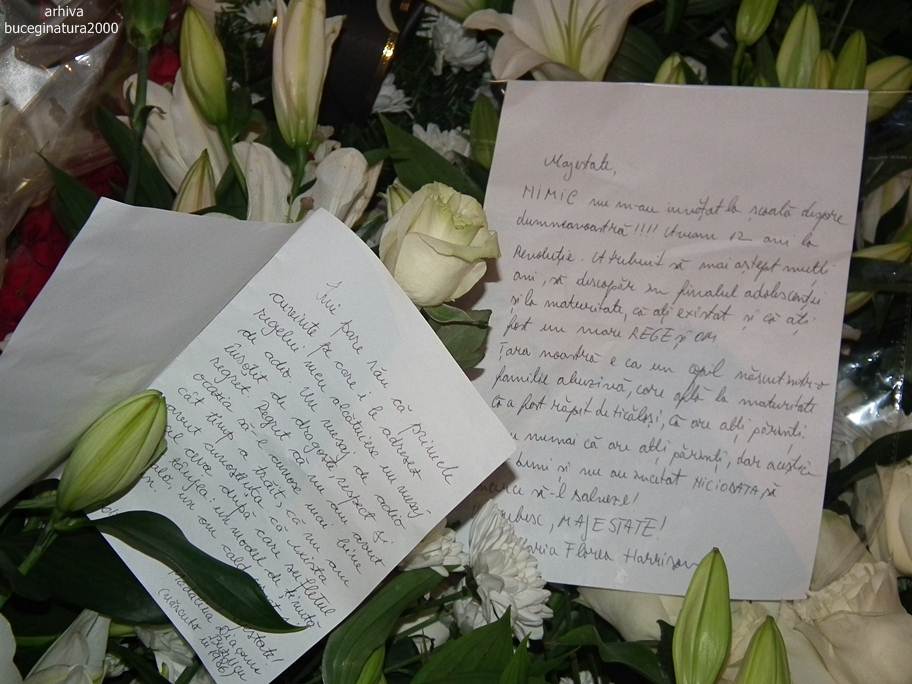 arhiva
buceginatura2000
Îmi pare rău că primele
cuvinte pe care i le adresez
regelui meu alcătuiesc un mesaj
de adio. Un mesaj de adio
însoțit de dragoste, respect și
regret. Regret că nu am avut
ocazia să-l cunosc mai bine
cât timp a trăit, că nu am
avut
ceva după care sufletul
un model de ținută
un om cald
Majestate,
NIMIC nu m-au învățat la școală despre
dumneavoastră!!!! Aveam 12 ani la
Revoluție. A trebuit să mai aștept mulți
ani, să descopăr în finalul adolescenței
și la maturitate, că ați existat și că ați
fost un mare REGE și OM
Țara noastră e ca un copil născut într-o
familie abuzivă, care află la maturitate
că a fost răpit de ticăloși, că are alți părinți.
numai că are alți părinți, dar aceștia
buni și nu au încetat NICIODATĂ să
să-l salveze!
MAJESTATE!
Florea Harrison